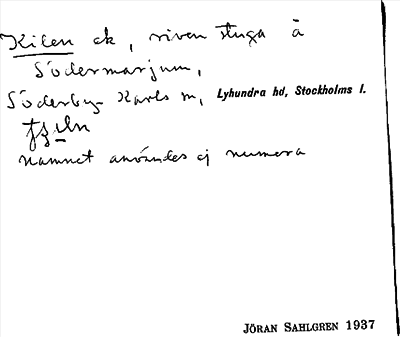 Kilen ck, riven stuga å
Södermarjum,
Söderby-Karls sn, Lyhundra hd, Stockholms l.
namnet användes ej numera
JÖRAN SAHLGREN 1937